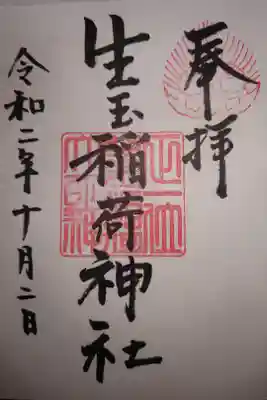 奉拝
生玉稲荷神社
令和二年十月二日